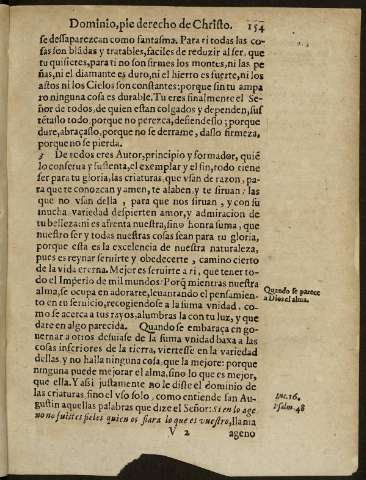 Dominio, pie derecho de Christo. 154
se dessaparezcan como fantasma. Para ti todas las co-
sas son blãdas y tratables, faciles de reduzir al ser, que
tu quisieres, para ti no son firmes los montes, ni las pe
ñas, ni el diamante es duro, ni el hierro es fuerte, ni los
astos ni los Cielos son constantes: porque sin tu ampa
ro ninguna cosa es durable. Tu eres finalmente el Se-
ñor de todos, de quien estan colgados y dependen, sus
tẽtaslo todo, porque no perezca, defiendeslo; porque
dure, abraçaslo, porque no se derrame, dasle firmeza,
porque no se pierda.
3 De todos eres Autor, principio y formador, quiẽ
lo conserua y sustenta, el exemplar y el fin, todo tiene
ser para tu gloria, las criaturas que vsan de razon, pa-
ra que te conozcan y amen, te alaben y te siruan: las
que no vsan della, para que nos siruan, y con su
mucha variedad despierten amor, y admiracion de
tu belleza: ni es afrenta nuestra, sino honra suma, que
nuestro ser y todas nuestras cosas sean para tu gloria,
porque esta es la excelencia de nuestra naturaleza,
pues es reynar seruirte y obedecerte, camino cierto
de la vida eterna. Mejor es seruirte a ti, que tener to-
do el Imperio de mil mundos. Porq̃ mientras nuestra
alma, se ocupa en adorarte, leuantando el pensamien-
to en tu seruicio, recogiendose a la suma vnidad, co-
mo se acerca a tus rayos, alumbras la con tu luz, y que
dare en algo parecida. Quando se embaraça en go-
uernar a otros desuiase de la suma vnidad baxa a las
cosas inferiores de la tierra, viertese en la variedad
dellas, y no halla ninguna cosa, que la mejore: porque
ninguna puede mejorar el alma, sino lo que es mejor,
que ella. Y asi justamente no le diste el dominio de
las criaturas, sino el vso solo, como entiende san Au-
gustin aquellas palabras que dize el Señor: Si en lo age
no no fuistes fieles quien os fiara lo que es vuestro, llama
V 2 ageno
Quando se parece
a Dios el alma.
Luc. 16.
Psalm. 48